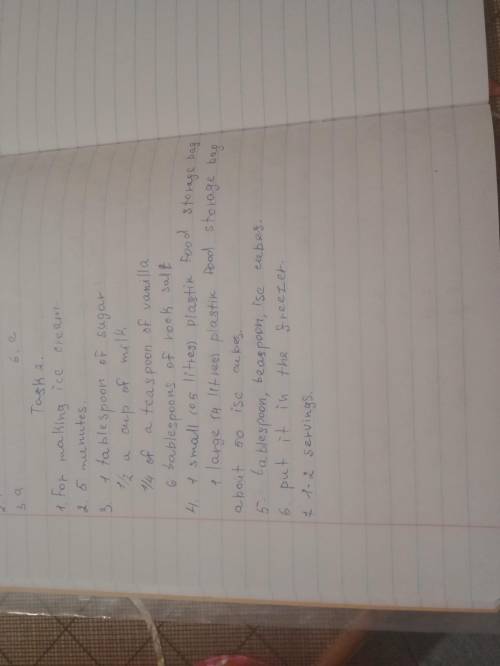 3 a 6. c
Task 2.
1. For making ice cream
2. 5 menutes.
3 1 tablespoon of sugar
1/2 a cup of milk
1/4 of a teaspoon of vanilla
6 tablespoons of rook salt
4, 1 small (0 5 litres) plastik food storage bag
1 large (4 litres) plastik food storage bag
about 50 ise cubes.
5. tablespoon, teaspoon, ise cubes.
6 put it in the freezer.
7 1-2 servings.